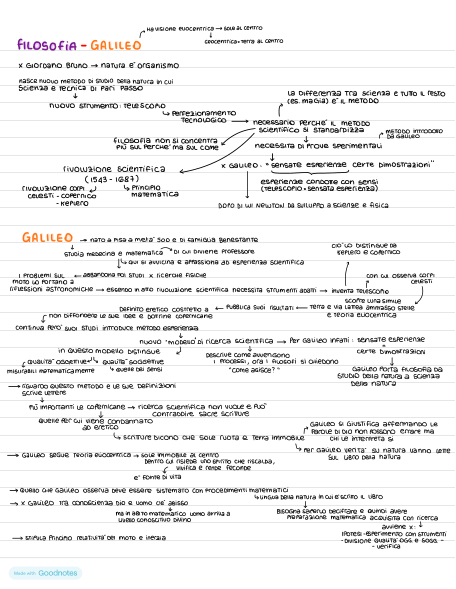 Ha visione eliocentrica → sole al centro
FILOSOFIA - GALILEO
geocentrica = terra al centro
x Giordano Bruno → natura è organismo
nasce nuovo metodo di studio della natura in cui
Scienza e tecnica di pari passo
la differenza tra scienza e tutto il resto
(es. magia) è il metodo
nuovo strumento: telescopio
Perfezionamento
tecnologico
necessario perchè il metodo
scientifico si standardizza
metodo introdotto
da Galileo
filosofia non si concentra
più sul perchè ma sul come
necessita di prove sperimentali
rivoluzione scientifica
(1543 - 1687)
x Galileo: "sensate esperienze certe dimostrazioni"
rivoluzione corpi
celesti - Copernico
- Keplero
Principia
matematica
esperienze condotte con sensi
(telescopio = sensata esperienza)
dopo di lui Newton da sviluppo a scienze e fisica
GALILEO → nato a Pisa a metà 500 e di famiglia benestante
studia medicina e matematica
di cui diviene professore
qui si avvicina e appassiona ad esperienza scientifica
ciò lo distingue da
Keplero e Copernico
i problemi sul
moto lo portano a
abbandona poi studi x ricerche fisiche
con cui osserva corpi
celesti
riflessioni astronomiche → essendo in atto rivoluzione scientifica necessita strumenti adatti → inventa telescopio
scopre luna simile
definito eretico costretto a
non diffondere le sue idee e dottrine copernicane
Pubblica suoi risultati ← Terra e via lattea ammasso stelle
e teoria eliocentrica
continua però suoi studi introduce metodo esperienza
nuovo "modello" di ricerca scientifica → Per Galileo infatti: sensate esperienze
in questo modello distingue
descrive come avvengono
i processi, ora i filosofi si chiedono
"come agisce?"
certe dimostrazioni
qualità oggettive
misurabili matematicamente
qualità soggettive
quelle dei sensi
Galileo porta filosofia da
studio della natura a scienza
della natura
→ riguardo questo metodo e le sue definizioni
scrive lettere
più importanti le copernicane → ricerca scientifica non vuole e può
contraddire sacre scritture
quelle per cui viene condannato
ad eretico
scritture dicono che sole ruota e Terra immobile
Galileo si giustifica affermando le
parole di Dio non possono errare ma
chi le interpreta si
Per Galileo verità su natura vanno lette
sul libro della natura
→ Galileo segue teoria eliocentrica → sole immobile al centro
dentro cui risiede uno spirito che riscalda,
vivifica e rende feconde
è fonte di vita
→ quello che Galileo osserva deve essere sistemato con procedimenti matematici
lingua della natura in cui è scritto il libro
→ x Galileo tra conoscenza Dio e uomo c'è abisso
ma in ambito matematico uomo arriva a
livello conoscitivo divino
Bisogna saperlo decifrare e quindi avere
preparazione matematica acquisita con ricerca
avviene x:
ipotesi - esperimento con strumenti
- divisione qualità ogg. e sogg. -
- verifica
→ stipula principio relatività del moto e inerzia
Made with Goodnotes